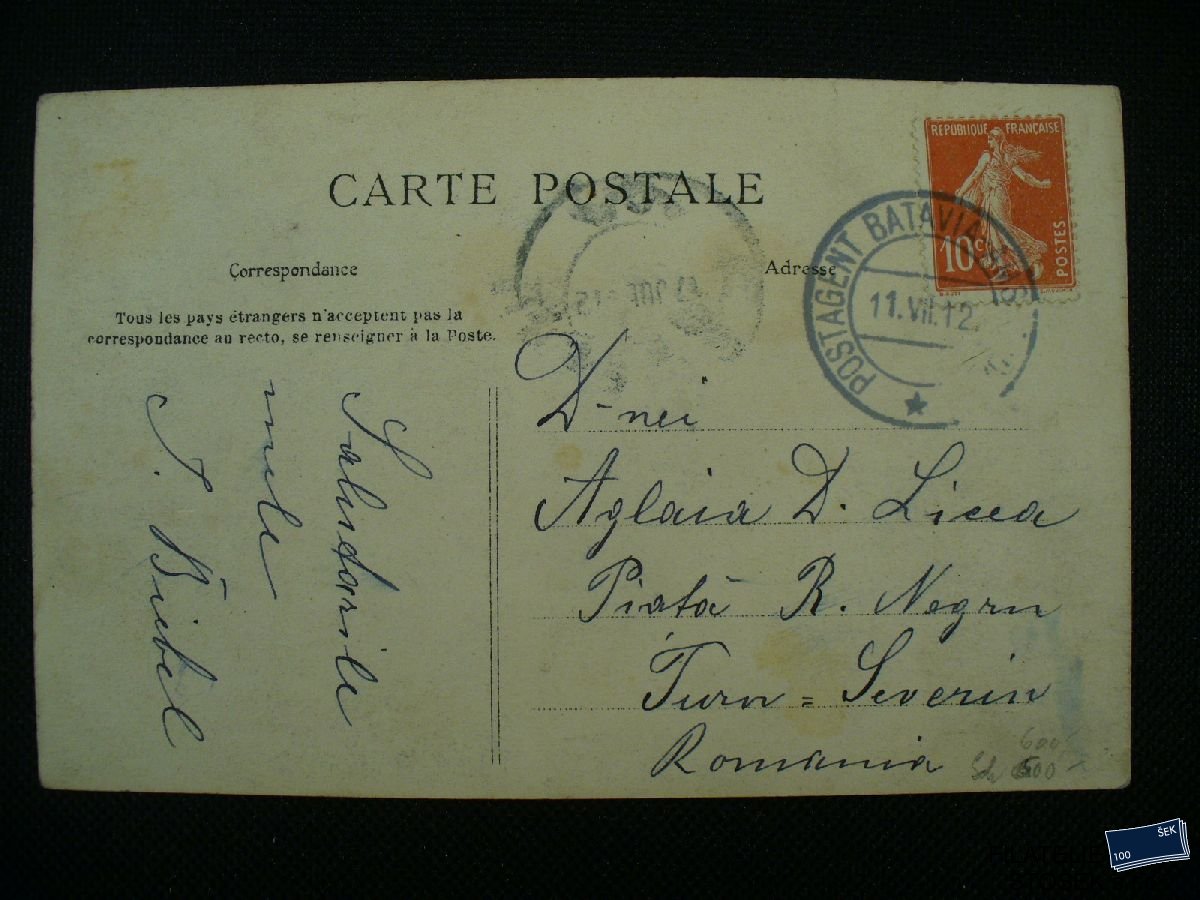 CARTE POSTALE
Correspondance
Adresse
Tous les pays étrangers n'acceptent pas la
correspondance au recto, se renseigner à la Poste.
REPUBLIQUE FRANÇAISE
10 c
POSTES
POSTAGENT BATAVIA
11.VII.12
Salutarile
mele
D-nei
Aglaia D. Licea
Piatá R. Negru
Turn=Severin
Romania
600
ŠEK
100